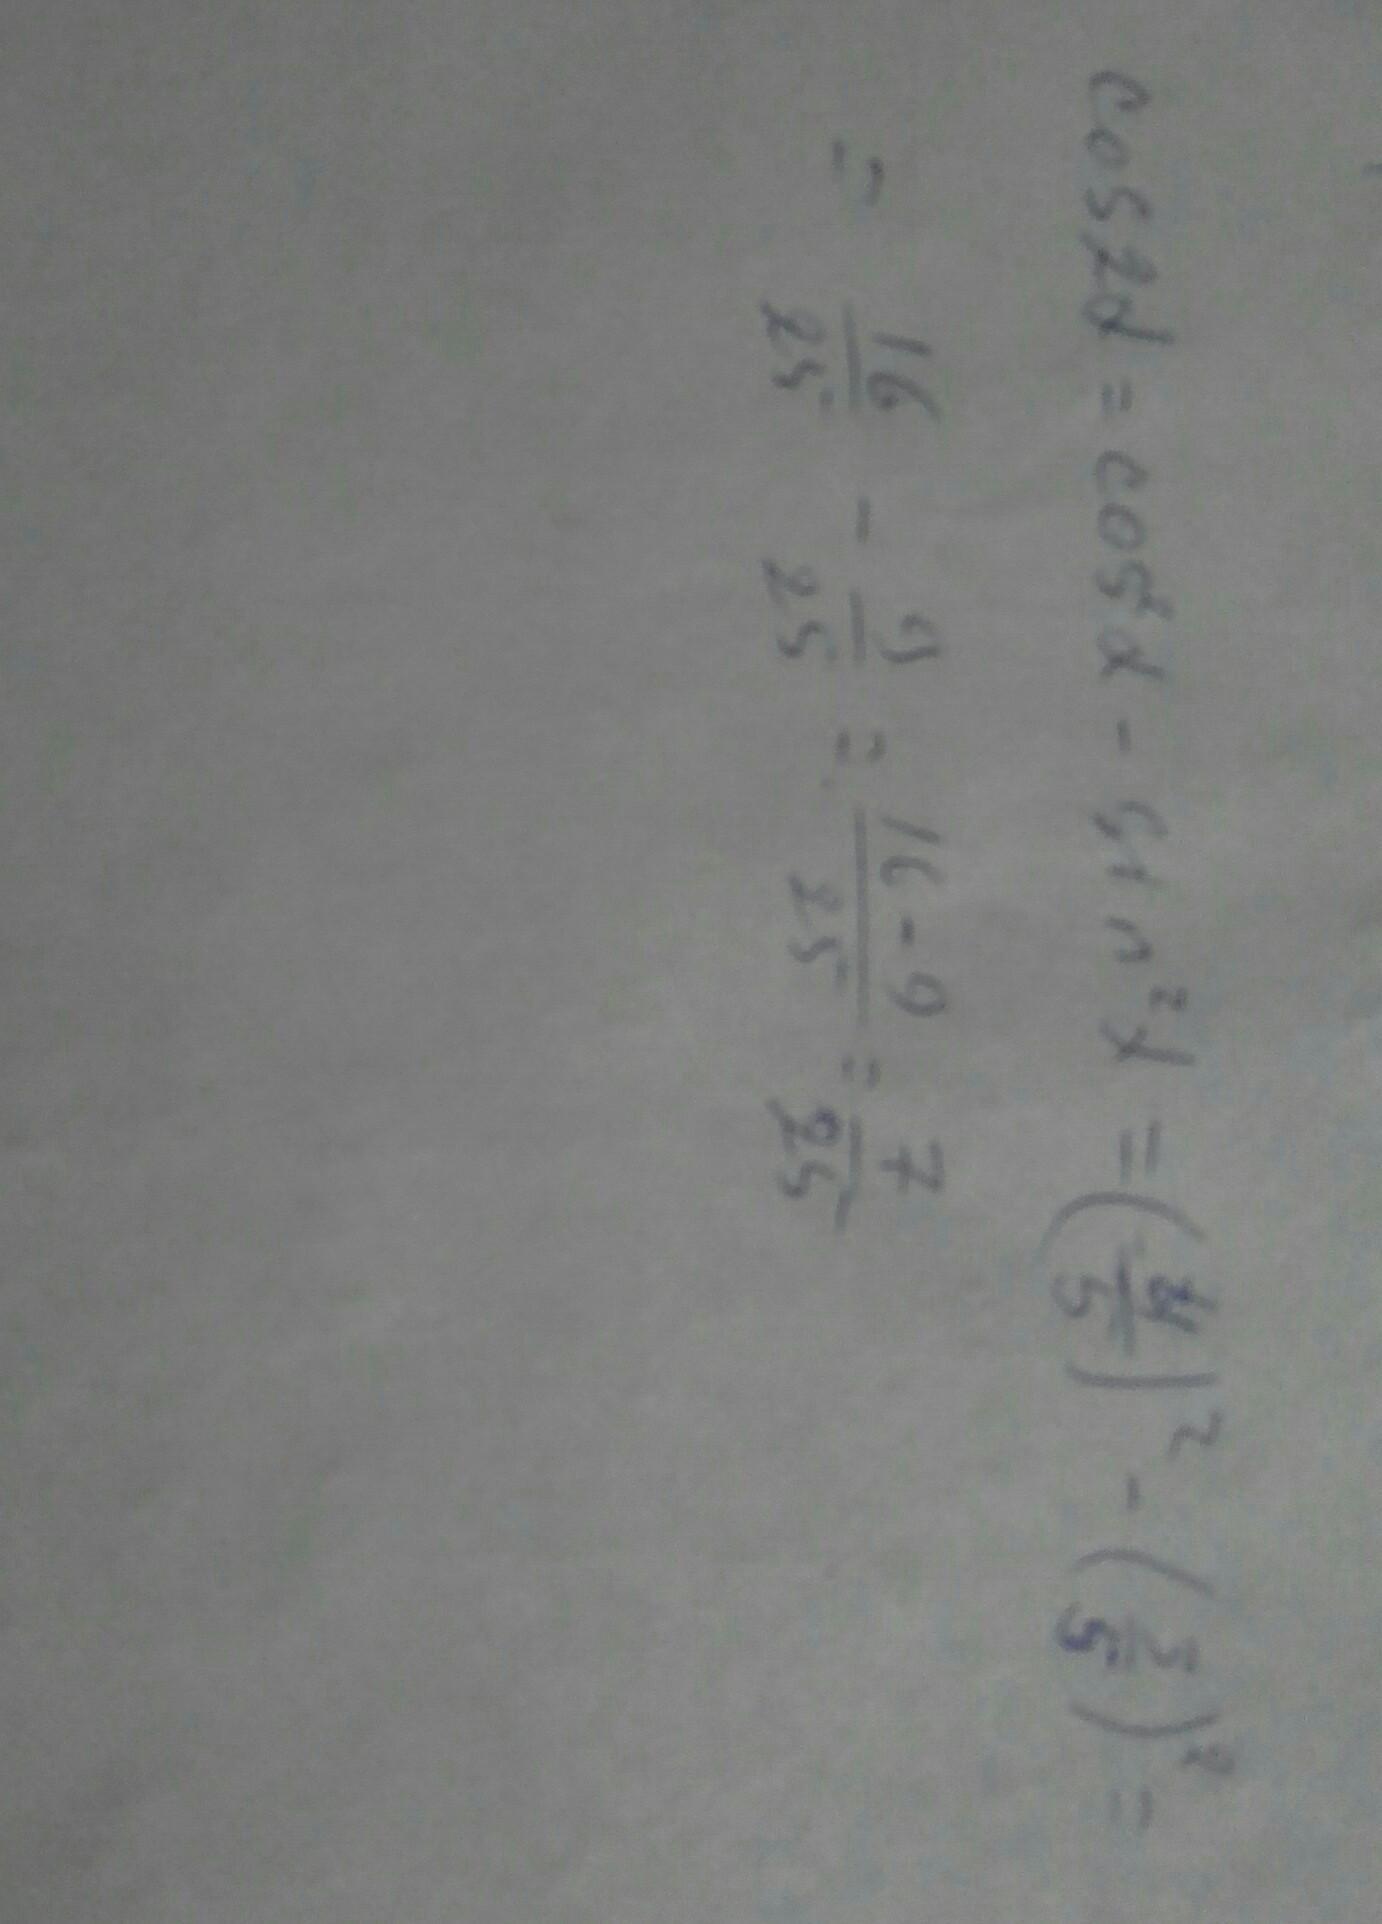 cos2α = cos²α - sin²α = (4/5)² - (3/5)² =
= 16/25 - 9/25 = 16-9/25 = 7/25